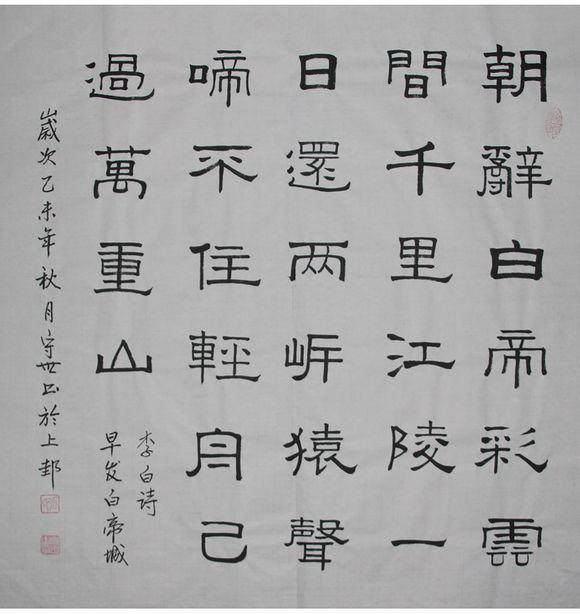 朝辭白帝彩雲
間千里江陵一
日還两岸猿聲
啼不住輕舟己
過萬重山
李白诗
早发白帝城
歲次乙未年秋月守世书於上邽